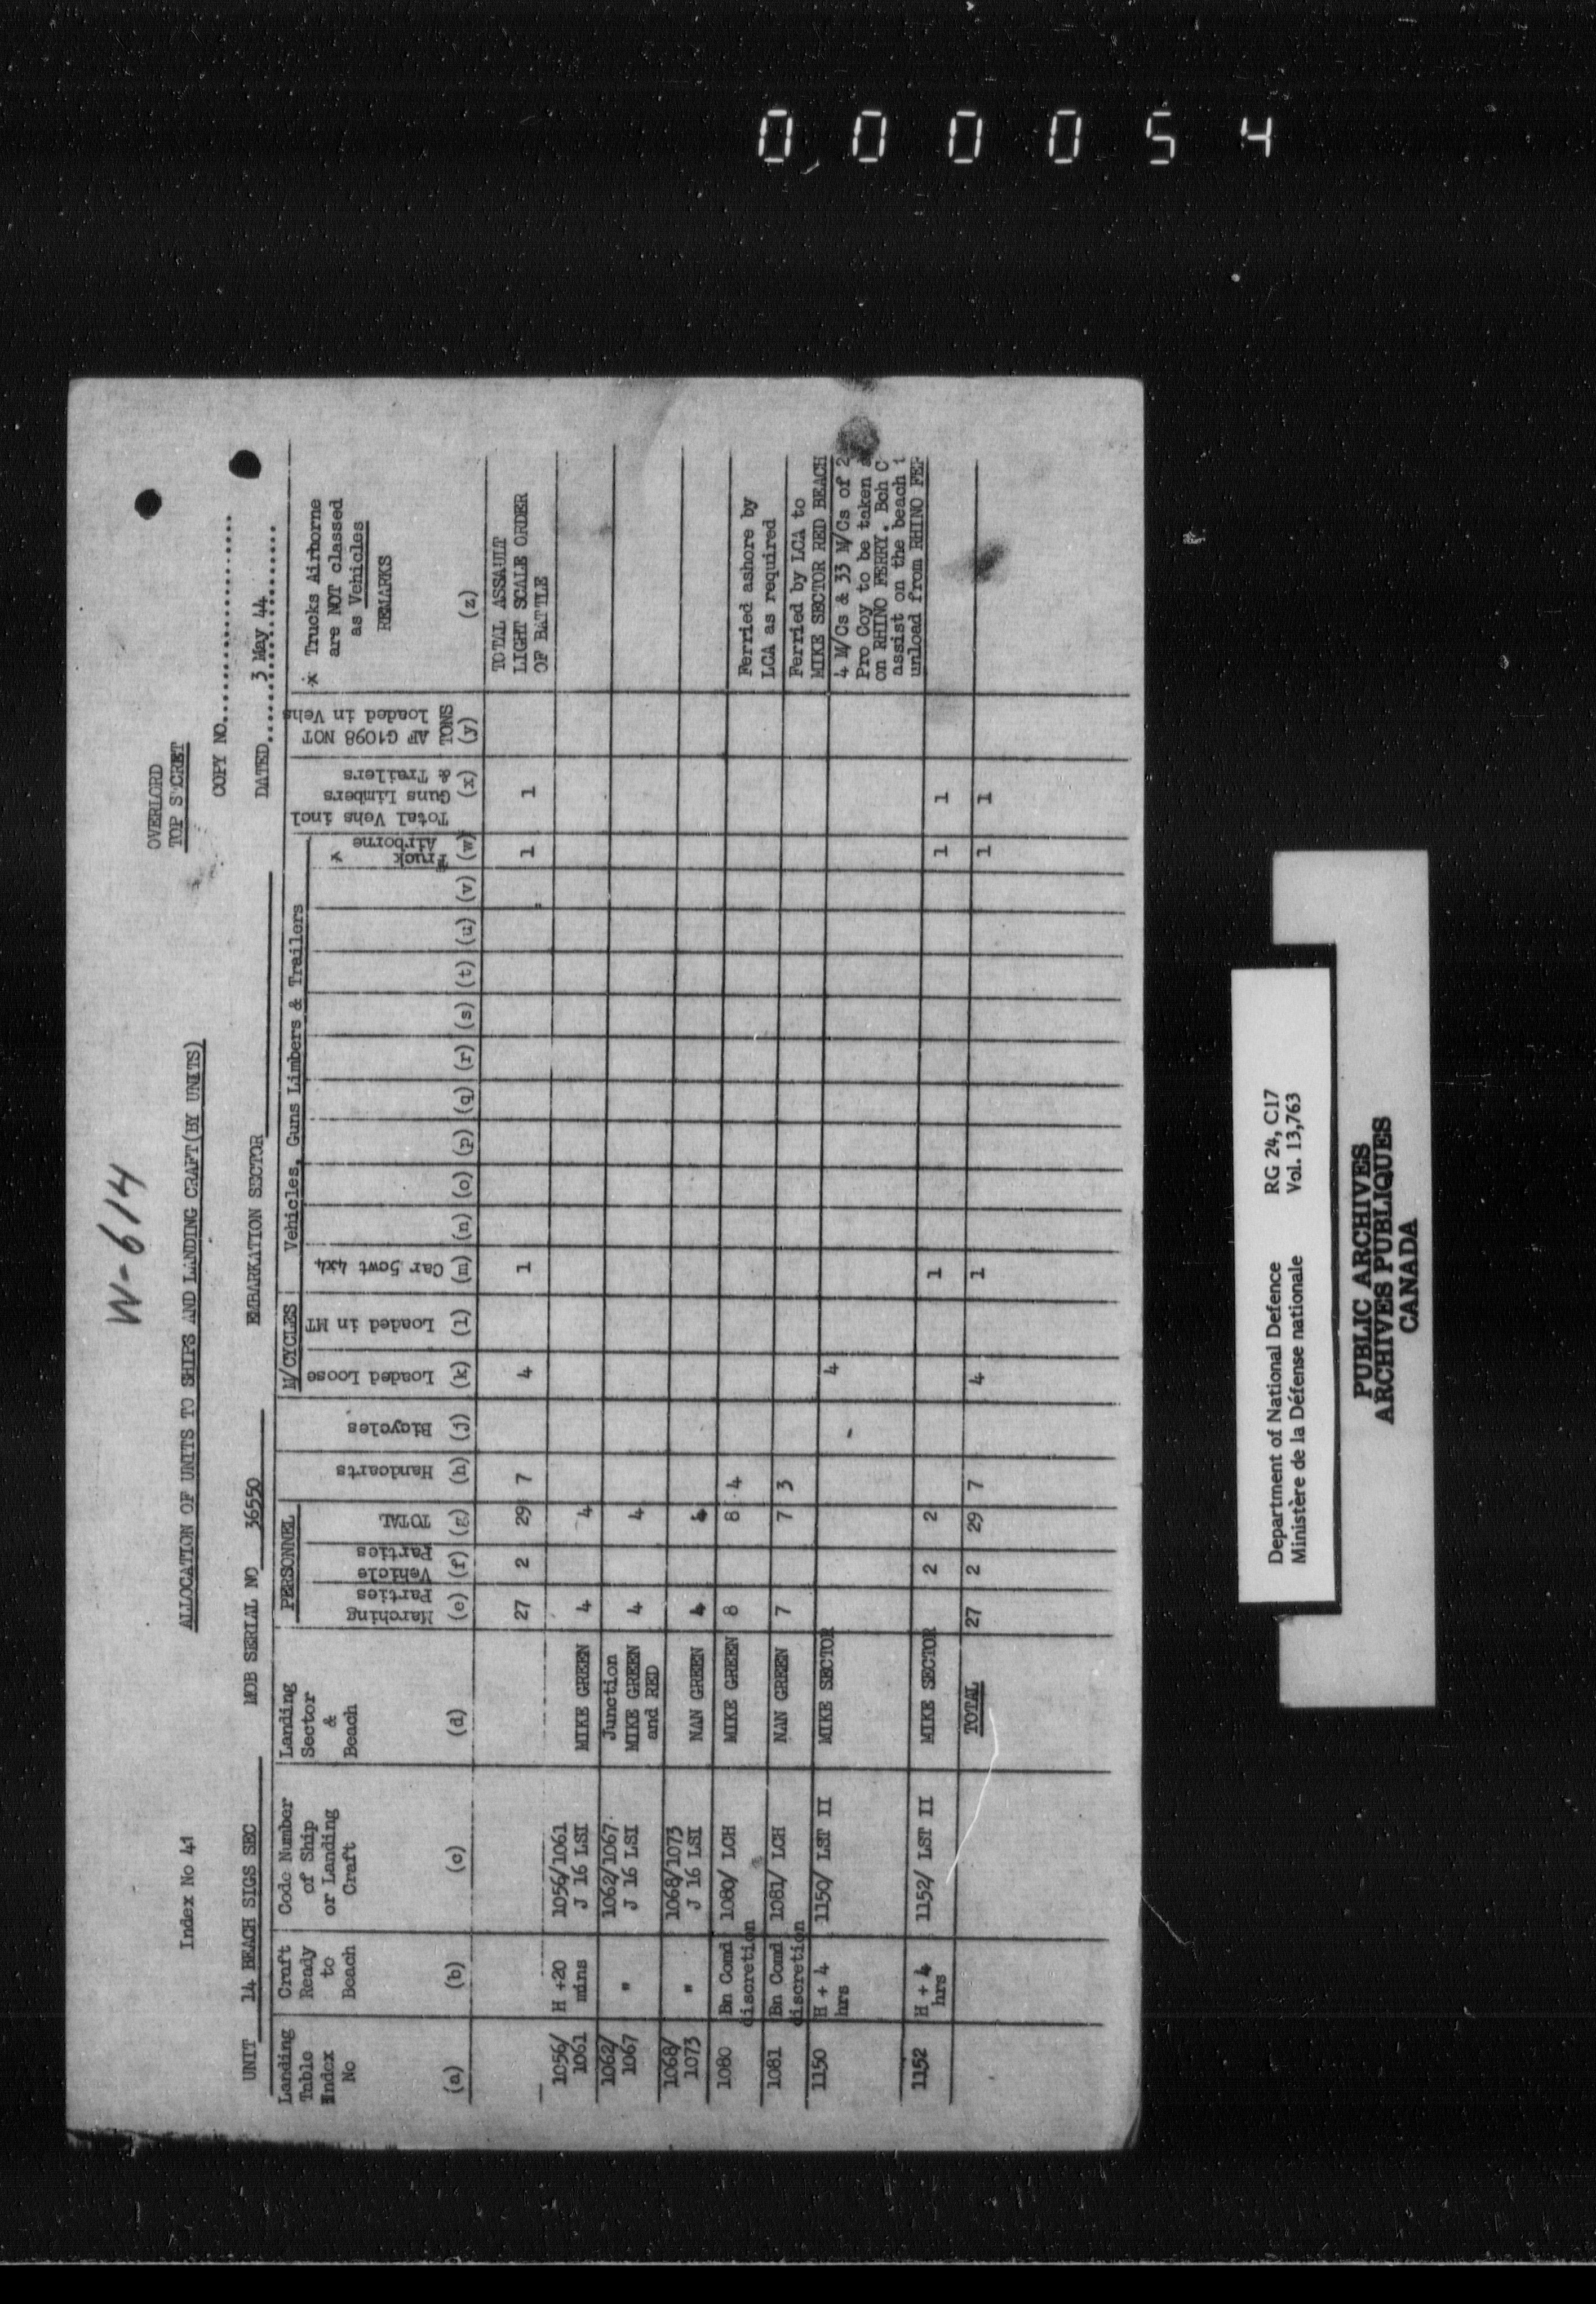 0 0 0 0 5 4
W-614
OVERLORD
TOP S'CRET
Index No 41
ALLOCATION OF UNITS TO SHIPS AND LANDING CRAFT(BY UNITS)
COPY NO....................
UNIT 14 BEACH SIGS SEC MOB SERIAL NO 36550 EMBARKATION SECTOR DATED 3 May 44
Landing Table Index No (a)
Craft Ready to Beach (b)
Code Number of Ship or Landing Craft (c)
Landing Sector & Beach (d)
PERSONNEL
Marching Parties (e)
Vehicle Parties (f)
TOTAL (g)
Handcarts (h)
Bicycles (j)
M/CYCLES
Loaded Loose (k)
Loaded in MT (l)
Vehicles, Guns Limbers & Trailers
Car 5cwt 4x4 (m)
(n) (o) (p) (q) (r) (s) (t) (u) (v)
Truck Airborne x (w)
Total Vehs incl Guns Limbers & Trailers (x)
AF G1098 NOT loaded in Vehs TONS (y)
x Trucks Airborne
are NOT classed
as Vehicles
REMARKS
(z)
27 2 29 7 4 1 1 1 TOTAL ASSAULT
LIGHT SCALE ORDER
OF BATTLE
1056/ H +20 1056/1061
1061 mins J 16 LSI MIKE GREEN 4 4
1062/ " 1062/1067 Junction
1067 J 16 LSI MIKE GREEN 4 4
and RED
1068/ " 1068/1073
1073 J 16 LSI NAN GREEN 4 4
1080 Bn Comd 1080/ LCH MIKE GREEN 8 8 4 Ferried ashore by
discretion LCA as required
1081 Bn Comd 1081/ LCH NAN GREEN 7 7 3 Ferried by LCA to
discretion MIKE SECTOR RED BEACH
1150 H + 4 1150/ LST II MIKE SECTOR 4 4 M/Cs & 33 M/Cs of 2
hrs Pro Coy to be taken
on RHINO FERRY. Bch C
assist on the beach
unload from RHINO FER
1152 H + 4 1152/ LST II MIKE SECTOR 2 2 1 1 1
hrs
TOTAL 27 2 29 7 4 1 1 1
Department of National Defence RG 24, C17
Ministère de la Défense nationale Vol. 13,763
PUBLIC ARCHIVES
ARCHIVES PUBLIQUES
CANADA